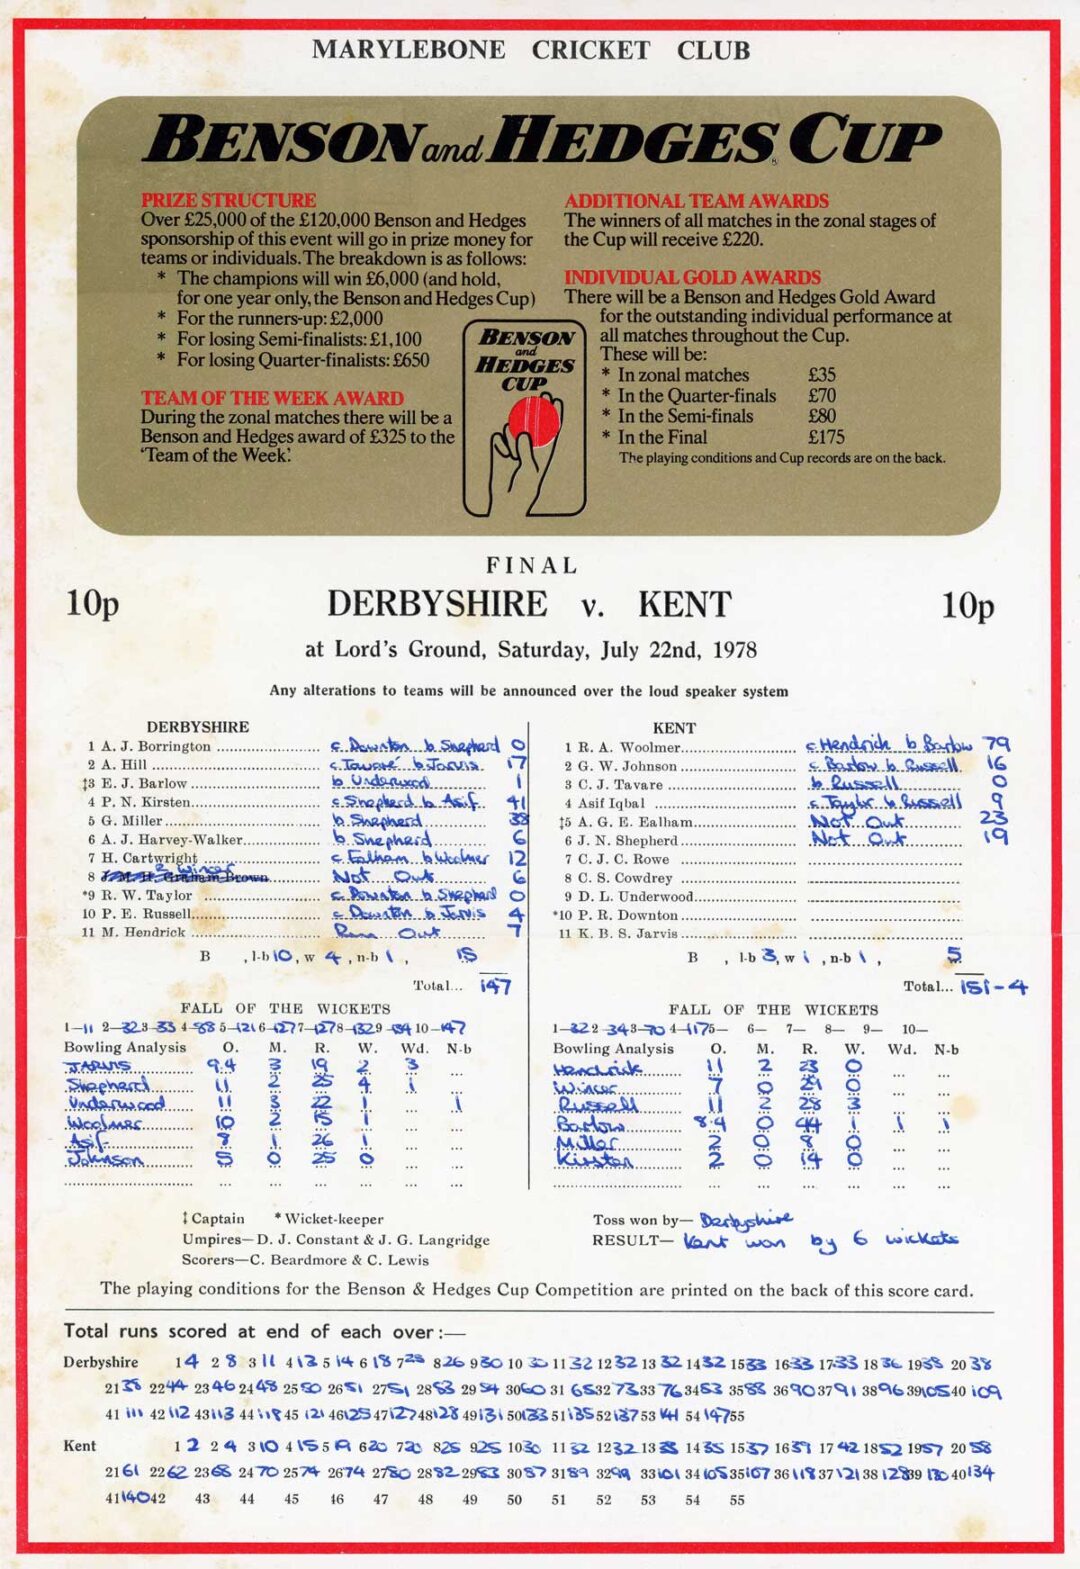 MARYLEBONE CRICKET CLUB
BENSON and HEDGES CUP
PRIZE STRUCTURE
Over £25,000 of the £120,000 Benson and Hedges
sponsorship of this event will go in prize money for
teams or individuals. The breakdown is as follows:
* The champions will win £6,000 (and hold,
for one year only, the Benson and Hedges Cup)
* For the runners-up: £2,000
* For losing Semi-finalists: £1,100
* For losing Quarter-finalists: £650
TEAM OF THE WEEK AWARD
During the zonal matches there will be a
Benson and Hedges award of £325 to the
'Team of the Week'.
BENSON
and
HEDGES
CUP
ADDITIONAL TEAM AWARDS
The winners of all matches in the zonal stages of
the Cup will receive £220.
INDIVIDUAL GOLD AWARDS
There will be a Benson and Hedges Gold Award
for the outstanding individual performance at
all matches throughout the Cup.
These will be:
* In zonal matches £35
* In the Quarter-finals £70
* In the Semi-finals £80
* In the Final £175
The playing conditions and Cup records are on the back.
FINAL
10p DERBYSHIRE v. KENT 10p
at Lord's Ground, Saturday, July 22nd, 1978
Any alterations to teams will be announced over the loud speaker system
DERBYSHIRE
1 A. J. Borrington c. Downton b Shepherd 0
2 A. Hill c. Tavaré b Jarvis 17
‡3 E. J. Barlow b Underwood 1
4 P. N. Kirsten c. Shepherd b Asif 41
5 G. Miller b Shepherd 38
6 A. J. Harvey-Walker b Shepherd 6
7 H. Cartwright c Ealham b Woolmer 12
8 J. M. H. Graham-Brown Wincer Not Out 6
*9 R. W. Taylor c Downton b Shepherd 0
10 P. E. Russell c Downton b Jarvis 4
11 M. Hendrick Run Out 7
B , l-b 10, w 4, n-b 1, 15
Total... 147
FALL OF THE WICKETS
1—11 2—32 3—33 4—88 5—121 6—127 7—127 8—132 9—134 10—147
Bowling Analysis O. M. R. W. Wd. N-b
JARVIS 9.4 3 19 2 3 ...
Shepherd 11 2 25 4 1 ...
Underwood 11 3 22 1 ... 1
Woolmer 10 2 15 1 ... ...
Asif 8 1 26 1 ... ...
Johnson 5 0 25 0 ... ...
KENT
1 R. A. Woolmer c Hendrick b Barlow 79
2 G. W. Johnson c Barlow b Russell 16
3 C. J. Tavare b Russell 0
4 Asif Iqbal c Taylor b Russell 9
‡5 A. G. E. Ealham Not Out 23
6 J. N. Shepherd Not Out 19
7 C. J. C. Rowe
8 C. S. Cowdrey
9 D. L. Underwood
*10 P. R. Downton
11 K. B. S. Jarvis
B , l-b 3, w 1, n-b 1, 5
Total... 151-4
FALL OF THE WICKETS
1—32 2—34 3—70 4—117 5— 6— 7— 8— 9— 10—
Bowling Analysis O. M. R. W. Wd. N-b
Hendrick 11 2 23 0 ... ...
Wincer 7 0 29 0 ... ...
Russell 11 2 28 3 ... ...
Barlow 8.4 0 44 1 1 1
Miller 2 0 8 0 ... ...
Kirsten 2 0 14 0 ... ...
‡ Captain * Wicket-keeper
Umpires—D. J. Constant & J. G. Langridge
Scorers—C. Beardmore & C. Lewis
Toss won by— Derbyshire
RESULT— Kent won by 6 wickets
The playing conditions for the Benson & Hedges Cup Competition are printed on the back of this score card.
Total runs scored at end of each over:—
Derbyshire 1 4 2 8 3 11 4 13 5 14 6 18 7 8 26 9 30 10 30 11 32 12 32 13 32 14 32 15 33 16 33 17 33 18 36 19 38 20 38
21 38 22 44 23 46 24 48 25 50 26 51 27 51 28 53 29 54 30 60 31 65 32 73 33 76 34 83 35 88 36 90 37 91 38 96 39 105 40 109
41 111 42 112 43 113 44 118 45 121 46 125 47 127 48 128 49 131 50 133 51 135 52 137 53 141 54 147 55
Kent 1 2 2 4 3 10 4 15 5 19 6 20 7 20 8 25 9 25 10 30 11 32 12 32 13 33 14 35 15 37 16 39 17 42 18 52 19 57 20 58
21 61 22 62 23 68 24 70 25 74 26 74 27 80 28 82 29 83 30 87 31 89 32 99 33 101 34 105 35 107 36 118 37 121 38 128 39 130 40 134
41 140 42 43 44 45 46 47 48 49 50 51 52 53 54 55